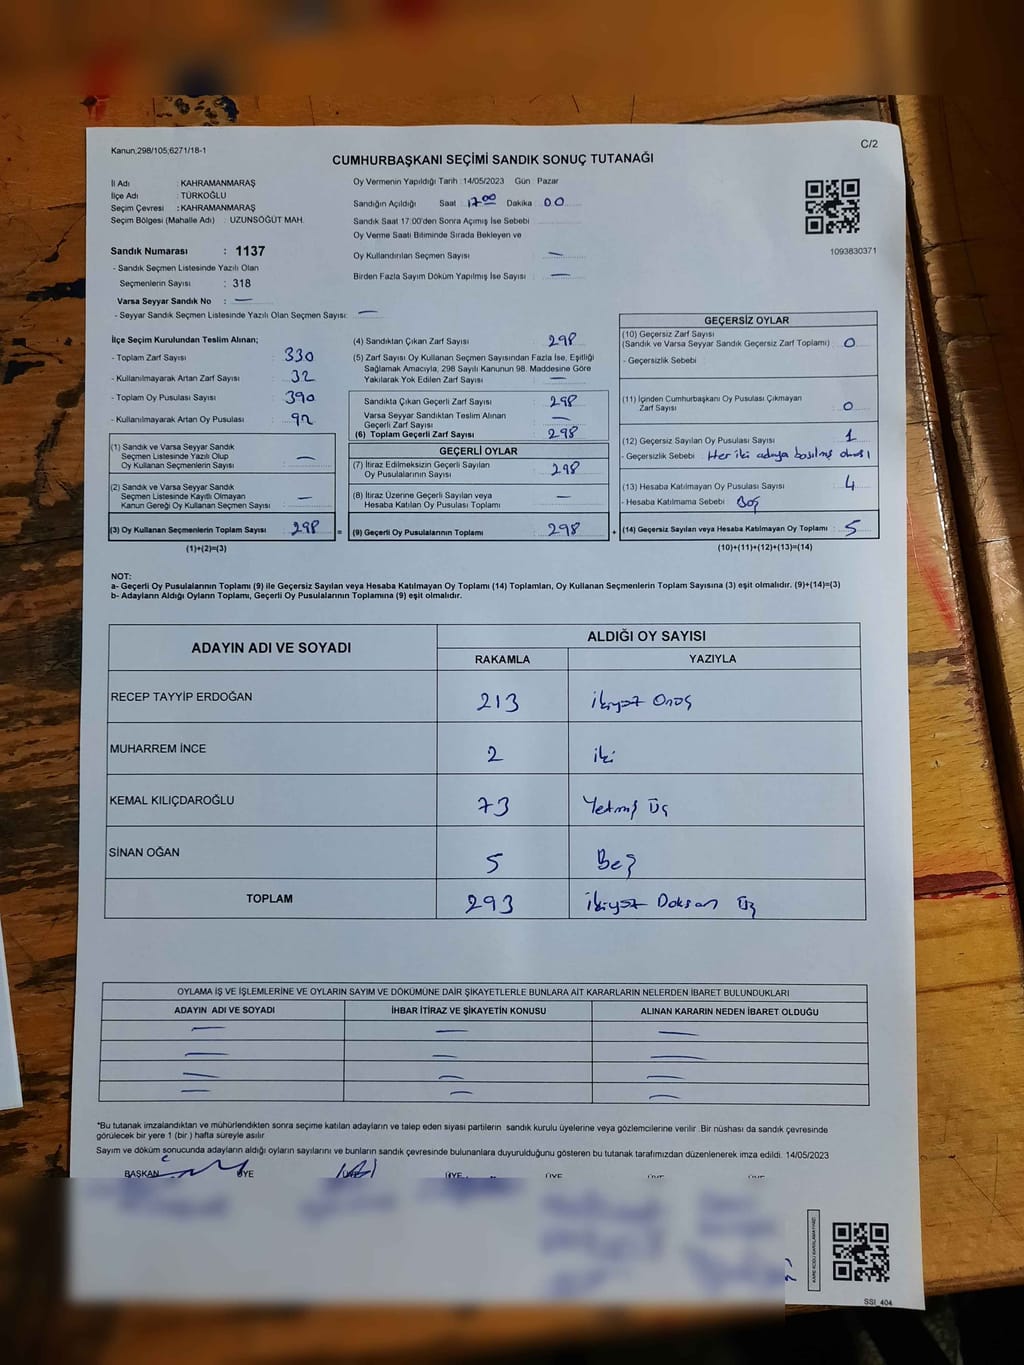 Kanun;298/105;6271/18-1
C/2
CUMHURBAŞKANI SEÇİMİ SANDIK SONUÇ TUTANAĞI
İl Adı : KAHRAMANMARAŞ
İlçe Adı : TÜRKOĞLU
Seçim Çevresi : KAHRAMANMARAŞ
Seçim Bölgesi (Mahalle Adı) : UZUNSÖĞÜT MAH.
Sandık Numarası : 1137
- Sandık Seçmen Listesinde Yazılı Olan
Seçmenlerin Sayısı : 318
Varsa Seyyar Sandık No : —
- Seyyar Sandık Seçmen Listesinde Yazılı Olan Seçmen Sayısı: —
Oy Vermenin Yapıldığı Tarih :14/05/2023 Gün : Pazar
Sandığın Açıldığı Saat : 17:00 Dakika : 00
Sandık Saat 17:00'den Sonra Açımış İse Sebebi
Oy Verme Saati Bitiminde Sırada Bekleyen ve
Oy Kullandırılan Seçmen Sayısı : —
Birden Fazla Sayım Döküm Yapılmış İse Sayısı : —
1093830371
İlçe Seçim Kurulundan Teslim Alınan;
- Toplam Zarf Sayısı : 330
- Kullanılmayarak Artan Zarf Sayısı : 32
- Toplam Oy Pusulası Sayısı : 390
- Kullanılmayarak Artan Oy Pusulası : 92
(1) Sandık ve Varsa Seyyar Sandık
Seçmen Listesinde Yazılı Olup
Oy Kullanan Seçmenlerin Sayısı : —
(2) Sandık ve Varsa Seyyar Sandık
Seçmen Listesinde Kayıtlı Olmayan
Kanun Gereği Oy Kullanan Seçmen Sayısı : —
(3) Oy Kullanan Seçmenlerin Toplam Sayısı : 298 =
(1)+(2)=(3)
(4) Sandıktan Çıkan Zarf Sayısı : 298
(5) Zarf Sayısı Oy Kullanan Seçmen Sayısından Fazla İse, Eşitliği
Sağlamak Amacıyla, 298 Sayılı Kanunun 98. Maddesine Göre
Yakılarak Yok Edilen Zarf Sayısı : —
Sandıkta Çıkan Geçerli Zarf Sayısı : 298
Varsa Seyyar Sandıktan Teslim Alınan
Geçerli Zarf Sayısı : —
(6) Toplam Geçerli Zarf Sayısı : 298
GEÇERLİ OYLAR
(7) İtiraz Edilmeksizin Geçerli Sayılan
Oy Pusulasının Sayısı : 298
(8) İtiraz Üzerine Geçerli Sayılan veya
Hesaba Katılan Oy Pusulası Toplamı : —
(9) Geçerli Oy Pusulalarının Toplamı : 298 +
GEÇERSİZ OYLAR
(10) Geçersiz Zarf Sayısı
(Sandık ve Varsa Seyyar Sandık Geçersiz Zarf Toplamı) : 0
- Geçersizlik Sebebi
(11) İçinden Cumhurbaşkanı Oy Pusulası Çıkmayan
Zarf Sayısı : 0
(12) Geçersiz Sayılan Oy Pusulası Sayısı : 1
- Geçersizlik Sebebi : Her iki adaya basılmış olması
(13) Hesaba Katılmayan Oy Pusulası Sayısı : 4
- Hesaba Katılmama Sebebi : Boş
(14) Geçersiz Sayılan veya Hesaba Katılmayan Oy Toplamı : 5
(10)+(11)+(12)+(13)=(14)
NOT:
a- Geçerli Oy Pusulalarının Toplamı (9) ile Geçersiz Sayılan veya Hesaba Katılmayan Oy Toplamı (14) Toplamları, Oy Kullanan Seçmenlerin Toplam Sayısına (3) eşit olmalıdır. (9)+(14)=(3)
b- Adayların Aldığı Oyların Toplamı, Geçerli Oy Pusulalarının Toplamına (9) eşit olmalıdır.
ADAYIN ADI VE SOYADI ALDIĞI OY SAYISI
RAKAMLA YAZIYLA
RECEP TAYYİP ERDOĞAN 213 ikiyüz Onüç
MUHARREM İNCE 2 iki
KEMAL KILIÇDAROĞLU 73 Yetmiş Üç
SİNAN OĞAN 5 Beş
TOPLAM 293 ikiyüz Doksan Üç
OYLAMA İŞ VE İŞLEMLERİNE VE OYLARIN SAYIM VE DÖKÜMÜNE DAİR ŞİKAYETLERLE BUNLARA AİT KARARLARIN NELERDEN İBARET BULUNDUKLARI
ADAYIN ADI VE SOYADI İHBAR İTİRAZ VE ŞİKAYETİN KONUSU ALINAN KARARIN NEDEN İBARET OLDUĞU
— — —
— — —
— — —
— — —
*Bu tutanak imzalandıktan ve mühürlendikten sonra seçime katılan adayların ve talep eden siyasi partilerin sandık kurulu üyelerine veya gözlemcilerine verilir. Bir nüshası da sandık çevresinde
görülecek bir yere 1 (bir ) hafta süreyle asılır
Sayım ve döküm sonucunda adayların aldığı oyların sayılarını ve bunların sandık çevresinde bulunanlara duyurulduğunu gösteren bu tutanak tarafımızdan düzenlenerek imza edildi. 14/05/2023
BAŞKAN ÜYE ÜYE ÜYE ÜYE
SSI_404